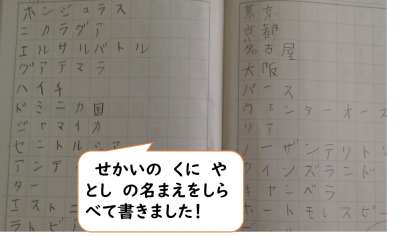 ホンジュラス
ニカラグア
エルサルバトル
グアテマラ
ハイチ
ドミニカ国
ジャマイカ
セントルシア
アンテ
ター
エストニ
ラトビ
東京
京都
名古屋
大阪
パース
ウェンターオース
リア
ノーザンテリト
インズランド
キャンベラ
ートモレスビ
せかいの くに や
とし の名まえをしら
べて書きました!